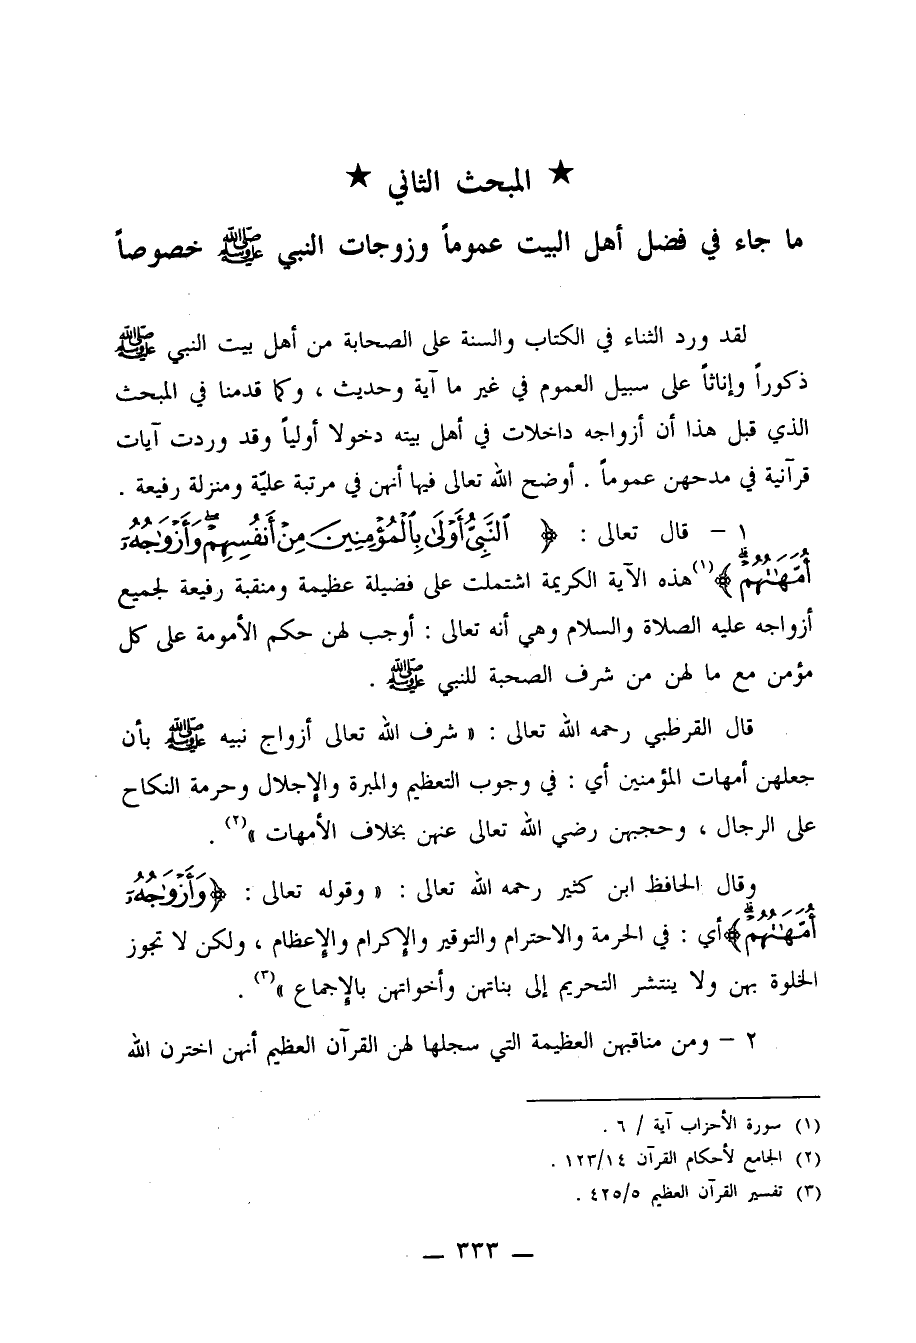 ★ المبحث الثاني ★
ما جاء في فضل أهل البيت عموماً وزوجات النبي ﷺ خصوصاً
لقد ورد الثناء في الكتاب والسنة على الصحابة من أهل بيت النبي ﷺ
ذكوراً وإناثاً على سبيل العموم في غير ما آية وحديث ، وكما قدمنا في المبحث
الذي قبل هذا أن أزواجه داخلات في أهل بيته دخولا أولياً وقد وردت آيات
قرآنية في مدحهن عموماً . أوضح الله تعالى فيها أنهن في مرتبة عليّة ومنزلة رفيعة .
١ – قال تعالى : ﴿ ٱلنَّبِىُّ أَوْلَىٰ بِٱلْمُؤْمِنِينَ مِنْ أَنفُسِهِمْ ۖ وَأَزْوَٰجُهُۥٓ
أُمَّهَٰتُهُمْ ۗ ﴾(١) هذه الآية الكريمة اشتملت على فضيلة عظيمة ومنقبة رفيعة لجميع
أزواجه عليه الصلاة والسلام وهي أنه تعالى : أوجب لهن حكم الأمومة على كل
مؤمن مع ما لهن من شرف الصحبة للنبي ﷺ .
قال القرطبي رحمه الله تعالى : « شرف الله تعالى أزواج نبيه ﷺ بأن
جعلهن أمهات المؤمنين أي : في وجوب التعظيم والمبرة والإجلال وحرمة النكاح
على الرجال ، وحجبهن رضي الله تعالى عنهن بخلاف الأمهات »(٢) .
وقال الحافظ ابن كثير رحمه الله تعالى : « وقوله تعالى : ﴿ وَأَزْوَٰجُهُۥٓ
أُمَّهَٰتُهُمْ ۗ ﴾ أي : في الحرمة والاحترام والتوقير والإكرام والإعظام ، ولكن لا تجوز
الخلوة بهن ولا ينتشر التحريم إلى بناتهن وأخواتهن بالإجماع »(٣) .
٢ – ومن مناقبهن العظيمة التي سجلها لهن القرآن العظيم أنهن اخترن الله
(١) سورة الأحزاب آية / ٦ .
(٢) الجامع لأحكام القرآن ١٢٣/١٤ .
(٣) تفسير القرآن العظيم ٤٢٥/٥ .
— ٣٣٣ —